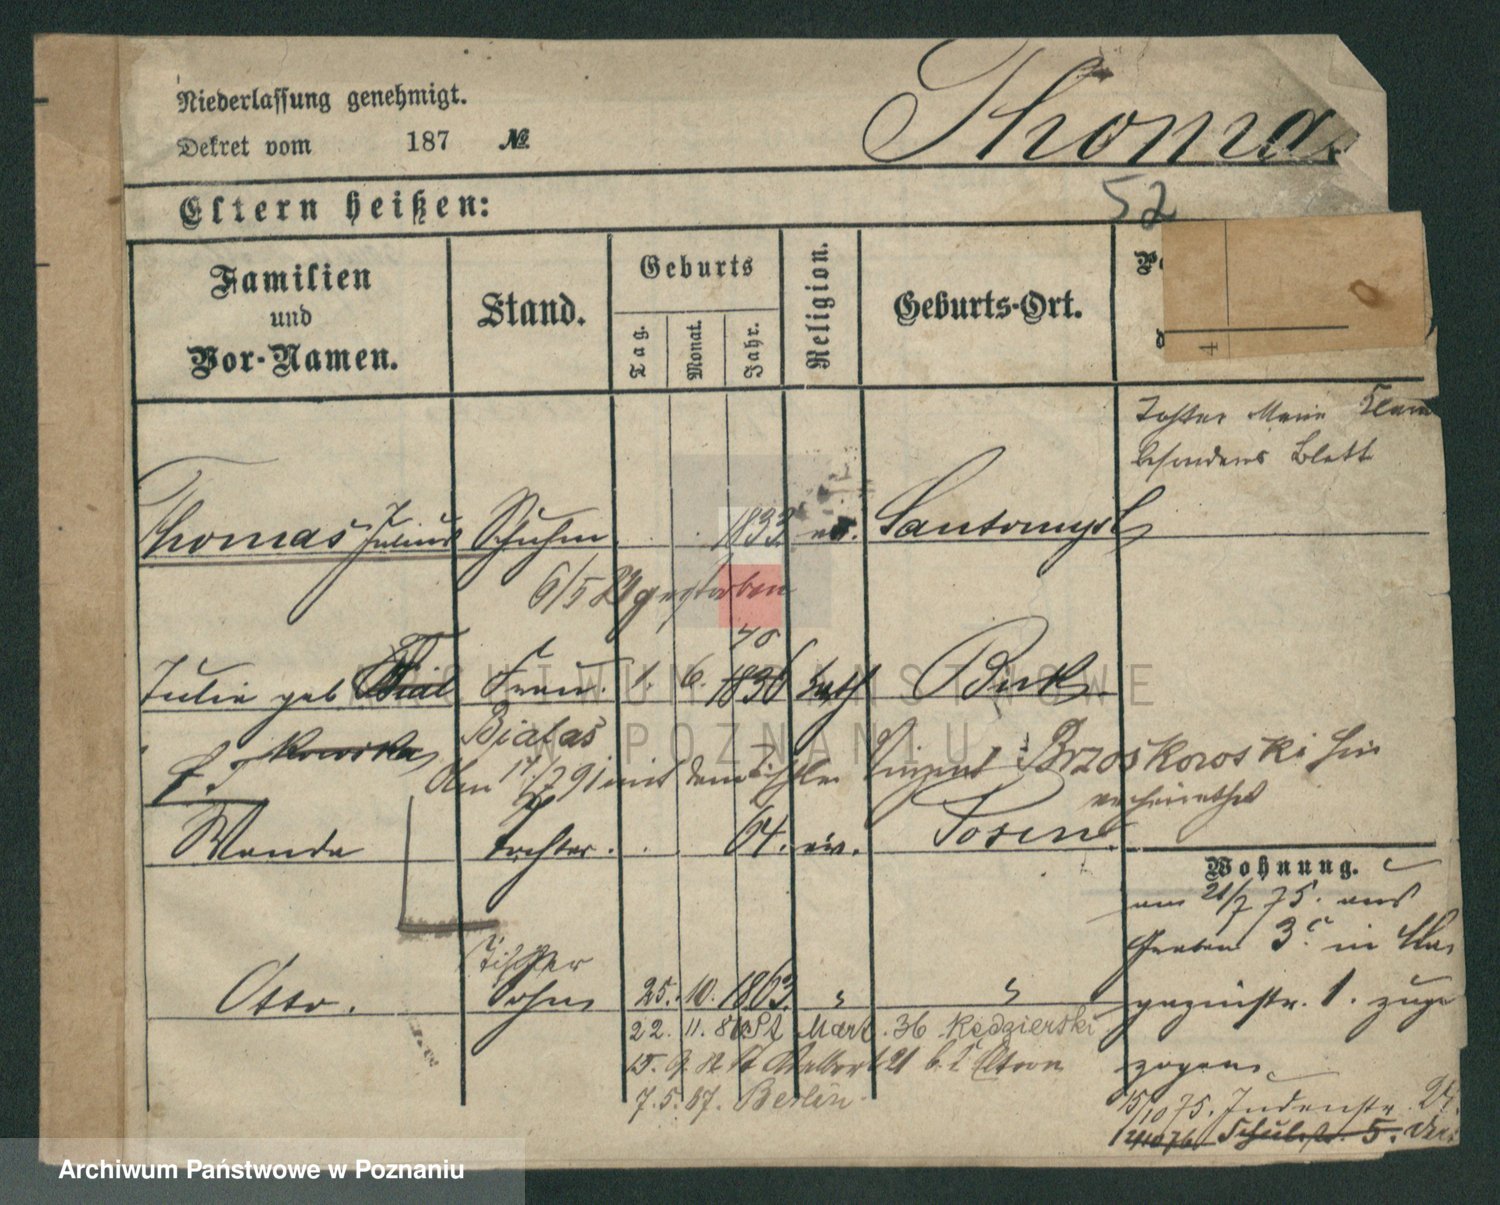 Niederlassung genehmigt.
Dekret vom 187 №
Thomas
52
Eltern heißen:
Familien
und
Vor-Namen.
Stand.
Geburts
Tag.
Monat.
Jahr.
Religion.
Geburts-Ort.
4
Tochter Marie
besonderes Blatt
Thomas Julius Schuhm. 1833. ev. Santomysl
6/5 gestorben
70
Julie geb Bial Frau. 1. 6. 1836 kath Buk.
kowska Bialas
den 17/7 91 mit dem Tischler Vinzent Brzoskowski hier
verheirathet
Wanda Tochter. 64. ev. Posen
Wohnung.
am 21/7 75. aus
Graben 3c. in
gazinstr. 1. zuge
zogen.
Tischler
Otto. Sohn 25. 10. 1863. " "
22. 11. 86 St Mart. 36 Kedzierski
15. 9. St Adalbert 21 b. d. Eltern
7. 5. 87. Berlin
15/10 75. Judenstr.
Schulstr. 5.
ARCHIWUM PAŃSTWOWE
W POZNANIU
Archiwum Państwowe w Poznaniu